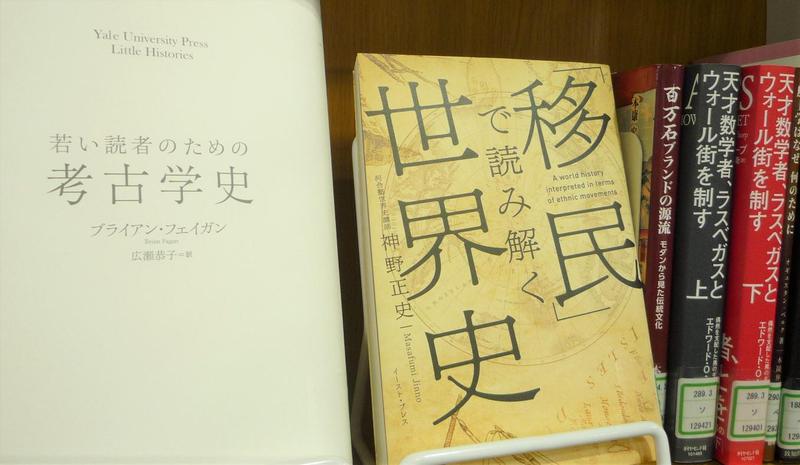 Yale University Press
Little Histories
若い読者のための
考古学史
ブライアン・フェイガン
Brian Fagan
広瀬恭子=訳
「移民」
で読み解く
世界史
A world history
interpreted in terms
of ethnic movements
河合塾世界史講師
神野正史
Masafumi Jinno
イースト・プレス
百万石ブランドの源流
モダンから見た伝統文化
天才数学者、ラスベガスと
ウォール街を制す
上
偶然を支配した男の
エドワード・O・
289.3
ソ
129421
ダイヤモンド社
天才数学者、ラスベガスと
ウォール街を制す
下
偶然を支配した男の
エドワード・O・
289.3
ソ
129401
ダイヤモンド社
何のために